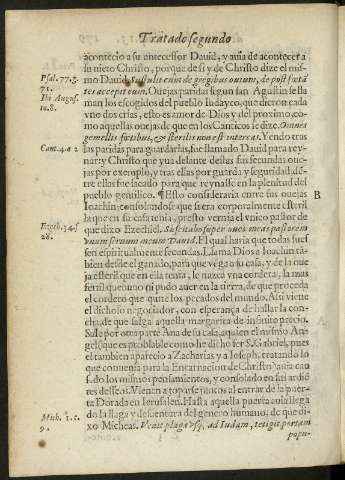 Tratado segundo.
acontecio a su antecessor Dauid, y auia de acontecer a
su nieto Christo, porque de si y de Christo dize el mis-
mo Dauid, sustulit eum de gregibus ouium, de post fœtã
tes accepit eum. Ouejas paridas segun san Agustin se lla
man los escogidos del pueblo Iudayco, que dieron cada
vno dos crias, esto es amor de Dios y del proximo, co-
mo aquellas ouejas de que en los Canticos se dize. Omnes
gemellis fœtibus, & sterilis non est inter eas. Yendo tras
las paridas para guardarlas, fue llamado Dauid para rey
nar: y Christo que yua delante dellas sus segundas oue-
jas por exemplo, y tras ellas por guarda y seguridad, dẽ-
tre ellas fue sacado para que reynasse en la plenitud del
pueblo gentilico. ¶ Esto consideraria entre sus ouejas
Ioachin: consolandose que si era corporalmente esteril
la que en su casa tenia, presto vernia el vnico pastor de
que dixo Ezechiel. Suscitabo super oues meas pastorem
vnum seruum meum Dauid. El qual haria que todas fues
sen espiritualmente fecundas. Llama Dios a Ioachin tã-
bien desde el ganado, para que venga a su casa, y de la oue
ja esteril que en ella tenia, le nazca vna cordera, la mas
fertil que vuo ni pudo auer en la tierra, de que proceda
el cordero que quite los pecados del mundo. Assi viene
el dichoso negociador, con esperança de hallar la con-
cha, de que salga aquella margarita de infinito precio.
Sale por otra parte Ana de su casa, a quien el mismo An-
gel (que es problable como he dicho fer S. Gabriel, pues
el tambien aparecio a Zacharias y a Ioseph, tratando lo
que conuenia para la Encarnacion de Christo) auia cau
sado los mismos pensamientos, y consolado en sus ardiẽ
tes desseos. Vienen a toparse juntos al entrar de la puer-
ta Dorada en Ierusalen. Hasta aquella puerta auia llega
do la llaga y desuentura del genero humano, de que di-
xo Micheas. Venit plaga vsq; ad Iudam, tetigit portam
popu-
Psal. 77. g.
71.
Ibi Augus.
to. 8.
Cant. 4. a 2
B
Ezech. 34. f
28.
Mich. 1. c.
9.